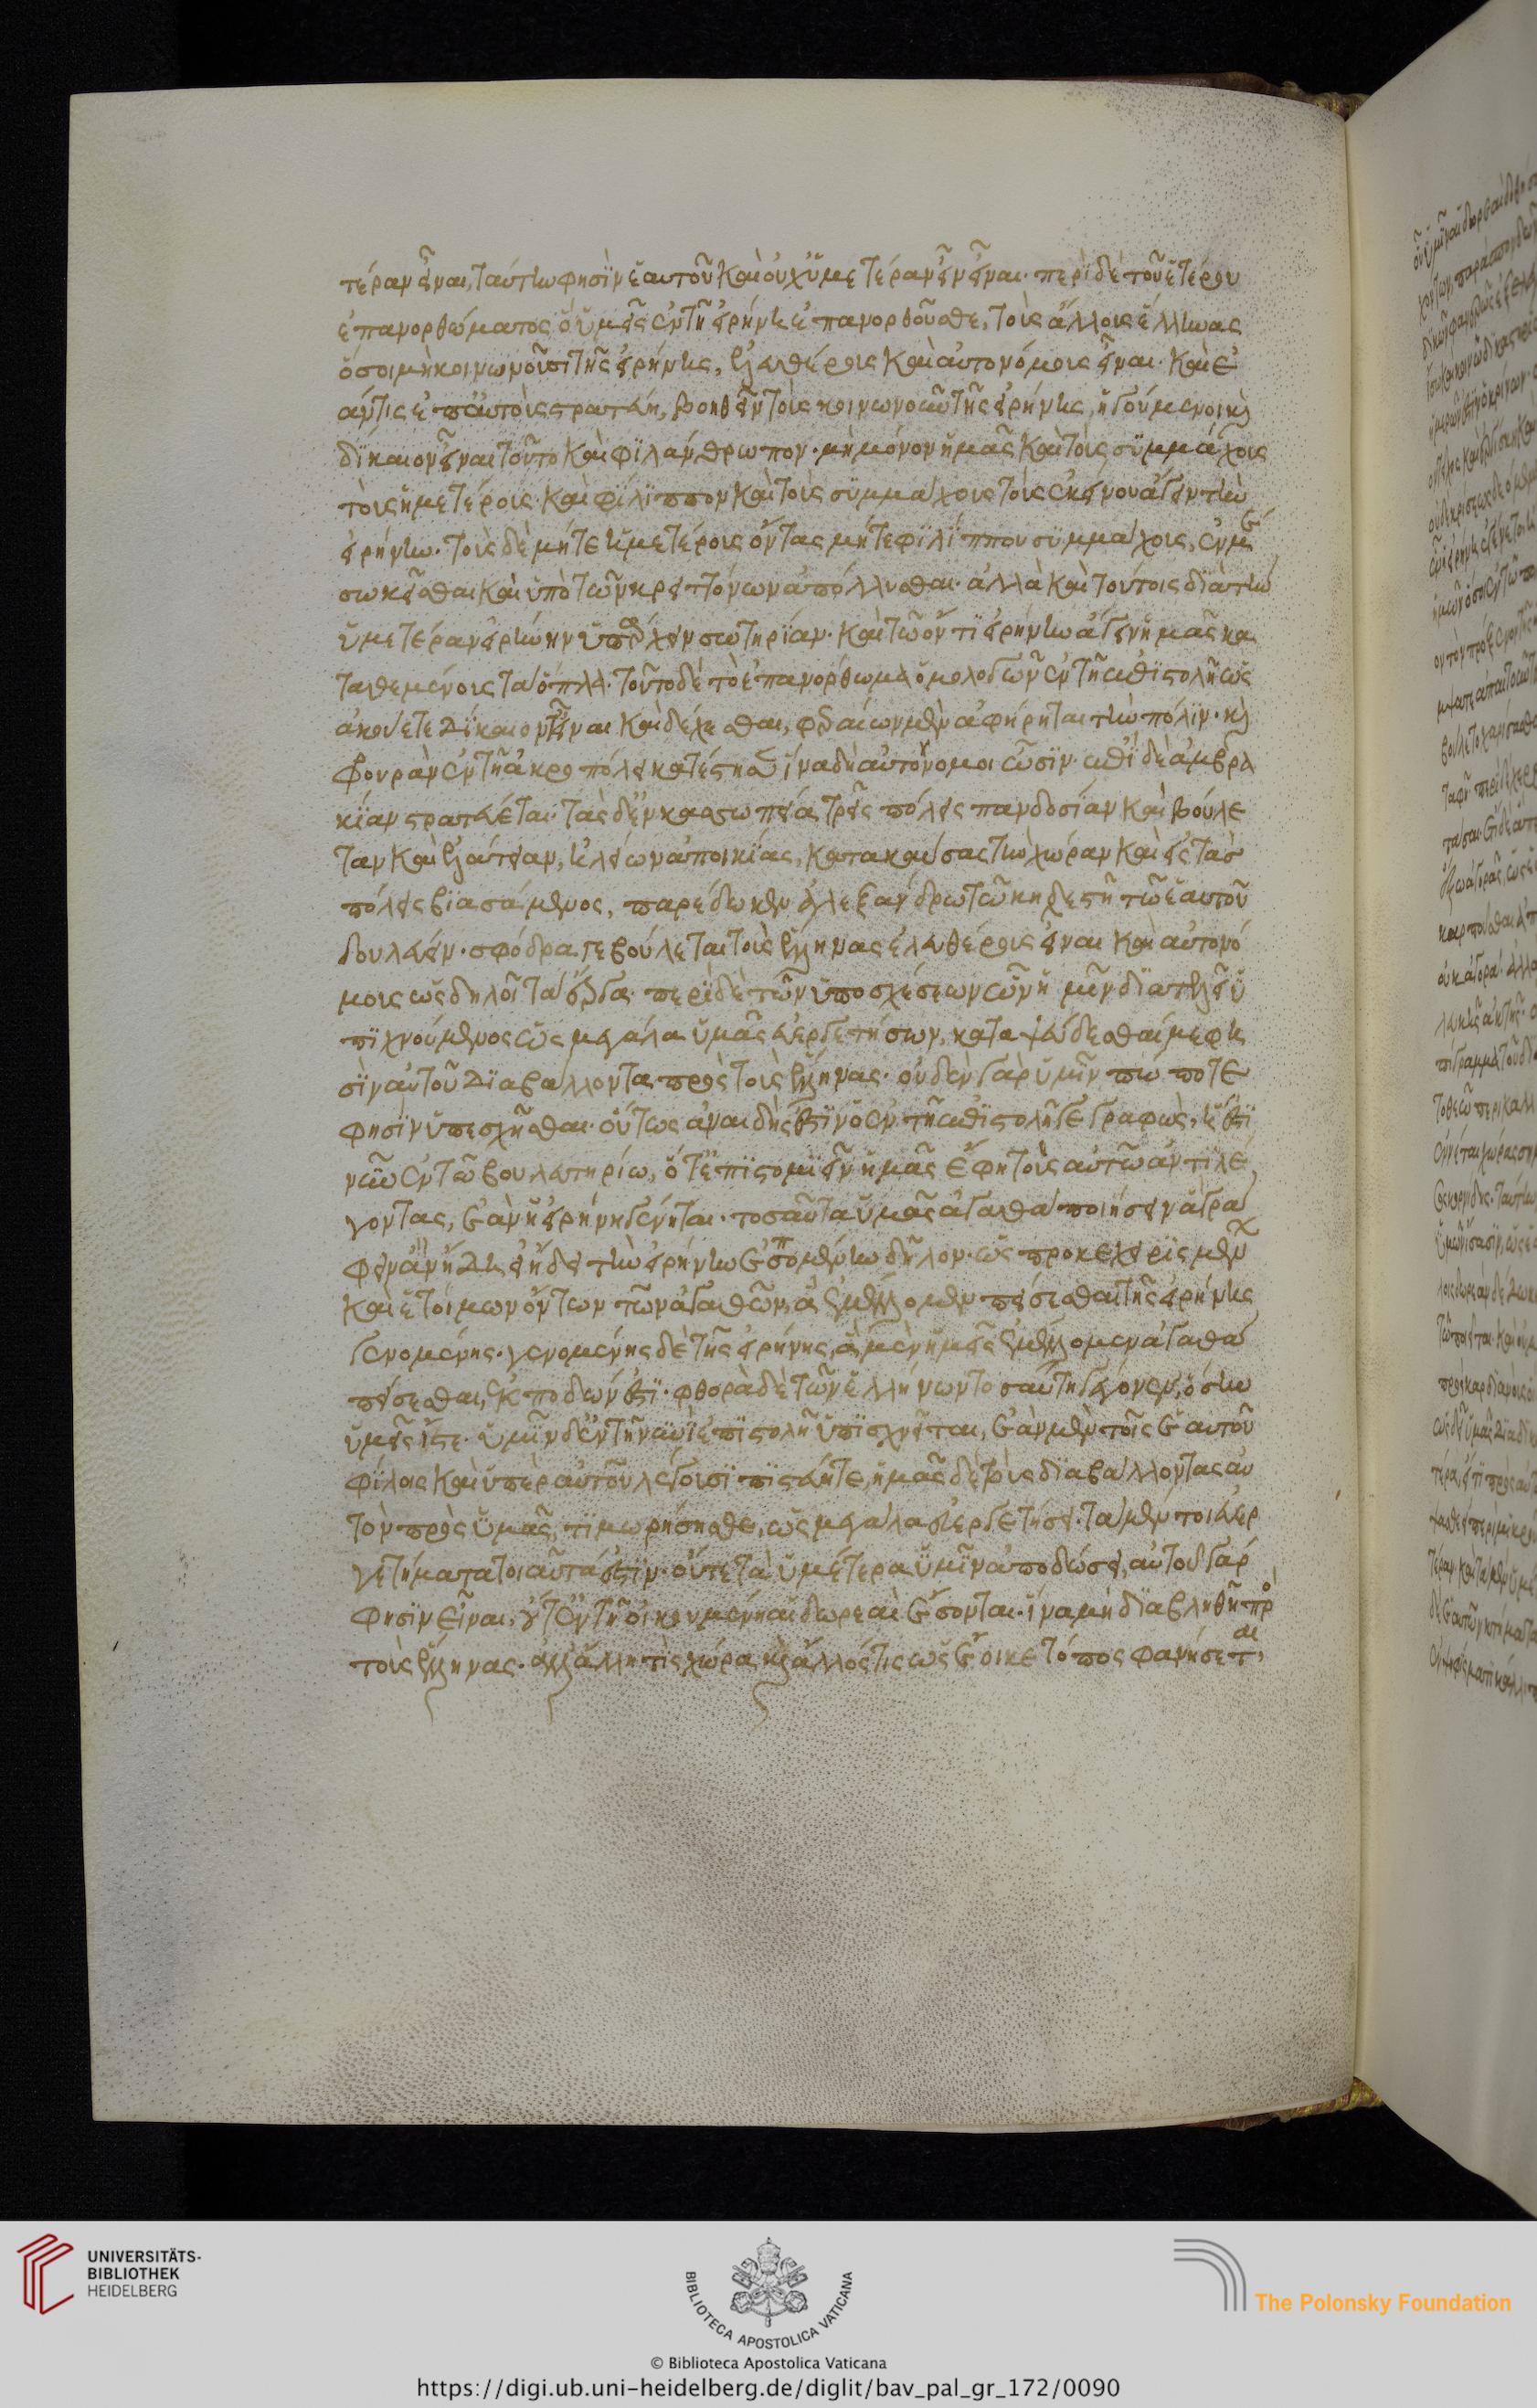 τέραν εἶναι, ταύτην φησὶν ἑαυτοῦ καὶ οὐχ ὑμετέραν εἶν εἶναι· περὶ δὲ τοῦ ἑτέρου
ἐπανορθώματος ὃ ὑμεῖς ἐν τῇ εἰρήνῃ ἐπανορθοῦσθε, τοὺς ἄλλους ἕλληνας
ὅσοι μὴ κοινωνοῦσι τῆς εἰρήνης, ἐλευθέρους καὶ αὐτονόμους εἶναι· καὶ ἐ
άν τις ἐπ' αὐτοὺς στρατεύῃ, βοηθεῖν τοὺς κοινωνοῦν τῆς εἰρήνης, ἡγούμενοι κỳ
δίκαιον εἶναι τοῦτο καὶ φιλάνθρωπον· μὴ μόνον ἡμᾶς καὶ τοὺς συμμάχους
τοὺς ἡμετέρους καὶ φίλιππον καὶ τοὺς συμμάχους τοὺς ἐκείνου ἄγειν τὴν
εἰρήνην· τοὺς δὲ μήτε ἡμετέρους ὄντας μήτε φιλίππου συμμάχους, ἐν μέ
σω κεῖσθαι καὶ ὑπὸ τῶν κρειττόνων ἀπόλλυσθαι· ἀλλὰ καὶ τούτοις διὰ τὴν
ὑμετέραν εἰρήνην ὑπάρχειν σωτηρίαν· καὶ τῷ ὄντι εἰρήνην ἄγειν ἡμᾶς κα
ταθεμένους τὰ ὅπλα· τοῦτο δὲ τὸ ἐπανόρθωμα ὁμολογῶν ἐν τῇ ἐπιστολῇ ὡς
ἀκούετε δίκαιόν τ' εἶναι καὶ δέχεσθαι, φεραίων μὲν ἀφῄρηται τὴν πόλιν· κỳ
φρουρὰν ἐν τῇ ἀκροπόλει κατέστησεν ἵνα δὴ αὐτόνομοι ὦσιν· ἐπὶ δὲ ἀμβρα
κίαν στρατεύεται· τὰς δ' ἐν κασσωπείᾳ τρεῖς πόλεις πανδοσίαν καὶ βούχε
ταν καὶ ἐλάτειαν, ἠλείων ἀποικίας, κατακαύσας τὴν χώραν καὶ εἰς τὰς
πόλεις βιασάμενος, παρέδωκεν ἀλεξάνδρῳ τῷ κηδεστῇ τῷ ἑαυτοῦ
δουλεύειν· σφόδρα γε βούλεται τοὺς ἕλληνας ἐλευθέρους εἶναι καὶ αὐτονό
μους ὡς δηλοῖ τὰ ἔργα· περὶ δὲ τῶν ὑποσχέσεων ὧν ὑμῖν διατελεῖ ὑ
πισχνούμενος ὡς μεγάλα ὑμᾶς εὐεργετήσων, καταψεύδεσθαί με φη
σὶν αὐτοῦ διαβάλλοντα πρὸς τοὺς ἕλληνας· οὐδὲν γὰρ ὑμῖν πώποτε
φησὶν ὑπεσχῆσθαι· οὕτως ἀναιδής ἐστιν ὁ ἐν τῇ ἐπιστολῇ γεγραφώς, ἥ ἐστι
νῦν ἐν τῷ βουλευτηρίῳ, ὅτ' ἐπιστομιεῖν ἡμᾶς ἔφη τοὺς αὐτῷ ἀντιλέ
γοντας, ἐὰν ἡ εἰρήνη γένηται· τοσαῦτα ὑμᾶς ἀγαθὰ ποιήσειν ἃ γρά
φειν ἂν ἤδη εἰ ᾔδει τὴν εἰρήνην ἐσομένην δῆλον· ὡς προκεχειρισμένων
καὶ ἑτοίμων ὄντων τῶν ἀγαθῶν, ἃ ἐμέλλομεν πείσεσθαι τῆς εἰρήνης
γενομένης· γενομένης δὲ τῆς εἰρήνης, ἃ μὲν ἡμεῖς ἐμέλλομεν ἀγαθὰ
πείσεσθαι, ἐκποδών ἐστι· φθορὰ δὲ τῶν ἑλλήνων τοσαύτη γέγονεν, ὅσην
ὑμεῖς ἴστε· ὑμῖν δ' ἐν τῇ νῦν ἐπιστολῇ ὑπισχνεῖται, ἐὰν μὲν τοῖς ἑαυτοῦ
φίλοις καὶ ὑπὲρ αὐτοῦ λέγουσι πιστεύητε, ἡμᾶς δὲ τοὺς διαβάλλοντας αὐ
τὸν πρὸς ὑμᾶς, τιμωρήσησθε, ὡς μεγάλα εὐεργετήσει· τὰ μέντοι εὐερ
γετήματα τοιαῦτά ἐστιν· οὔτε τὰ ὑμέτερα ὑμῖν ἀποδώσει, αὐτοῦ γάρ
φησιν εἶναι, οὔτ' ἐν τῇ οἰκουμένῃ αἱ δωρεαὶ ἔσονται· ἵνα μὴ διαβληθῇ πρὸς
τοὺς ἕλληνας· ἀλλ' ἄλλη τις χώρα κỳ ἄλλος τις ὡς ἔοικε τόπος φανήσεται
UNIVERSITÄTS-
BIBLIOTHEK
HEIDELBERG
BIBLIOTECA APOSTOLICA VATICANA
The Polonsky Foundation
© Biblioteca Apostolica Vaticana
https://digi.ub.uni-heidelberg.de/diglit/bav_pal_gr_172/0090